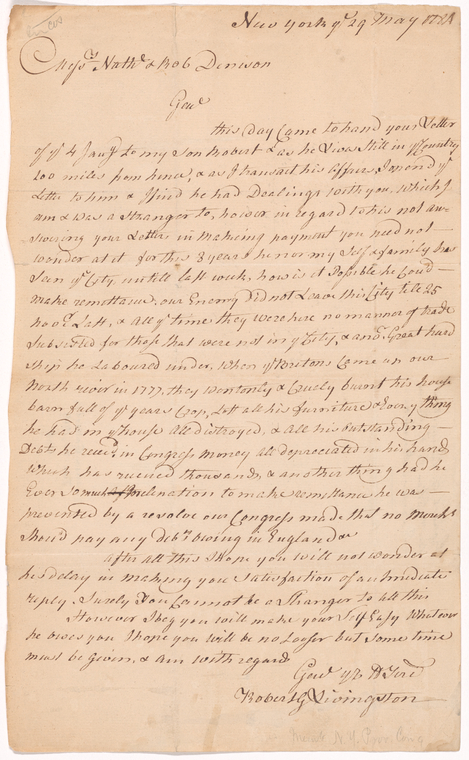 New York ye 29 May 178
Messrs Nathl & Rob Denison
Gene
this Day Came to hand your Letter
of ye 4 Jany to my son Robert & as he Lives still in ye Country
100 miles from hence, & as I transact his affires I opend ye
Letter to him & I find he had Dealings with you, which I
am & was a stranger to, howier in regard to his not an-
swering your Letters in makeing payment you need not
wonder at it for this 8 years he nor my Self & family has
Seen ye City, untill last week, how is it Possible he Could
make remettance, our Enemy Did not Leave this City till 25
Novr Last, & all ye time they were here no manner of trade
Subsisted for those that were not in ye City, & anor Great hard
ship he Laboured under, When ye Britons Came up our
North river in 1777, they wontonly & Cruely burnt his house
barn full of ye years Crop, Lost all his furniture & Every thing
he had in ye house all distroyed, & all his outstanding
Debts he receivd in Congress money all depreciated in his hand,
Which has ruened thousands, & another thing had he
Ever so much Inclenation to make remettance he was
prevented by a resolve our Congress made that no Mercht
should pay any debts owing in England &c
after all this I hope you will not wonder at
his delay in making you Satisfaction or an Imediate
reply. Surely you Cannot be a Stranger to all this
However I beg you will make your Self Easy Whatever
he owes you I hope you will be no Looser but some time
must be Given, & am with regard
Gene yr H Serv
Robert G Livingston
Memb. N.Y. Prov. Cong